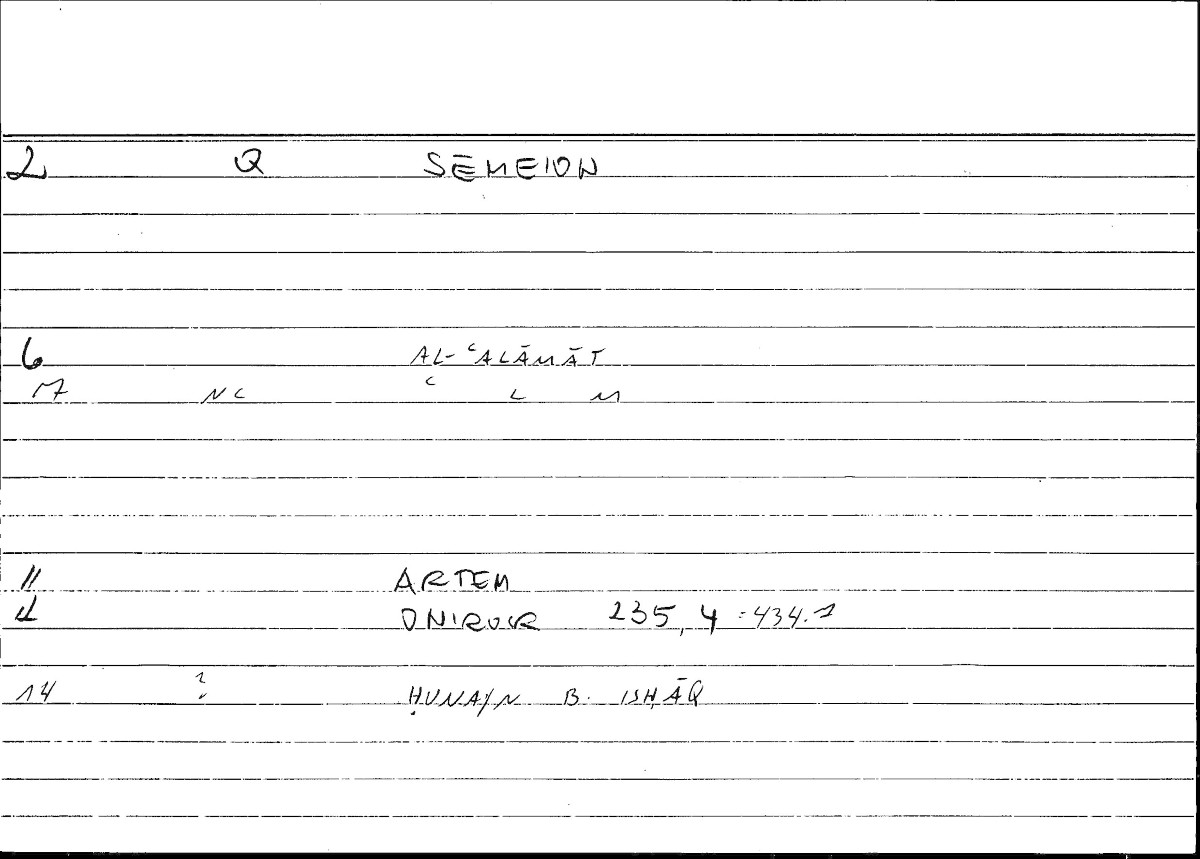 2 Q SĒMEION
6 AL-ʿALĀMĀT
17 NC ʿ L M
11 ARTEM
12 ONIROCR 235, 4 : 434.1
14 ? ḤUNAYN B. ISḤĀQ